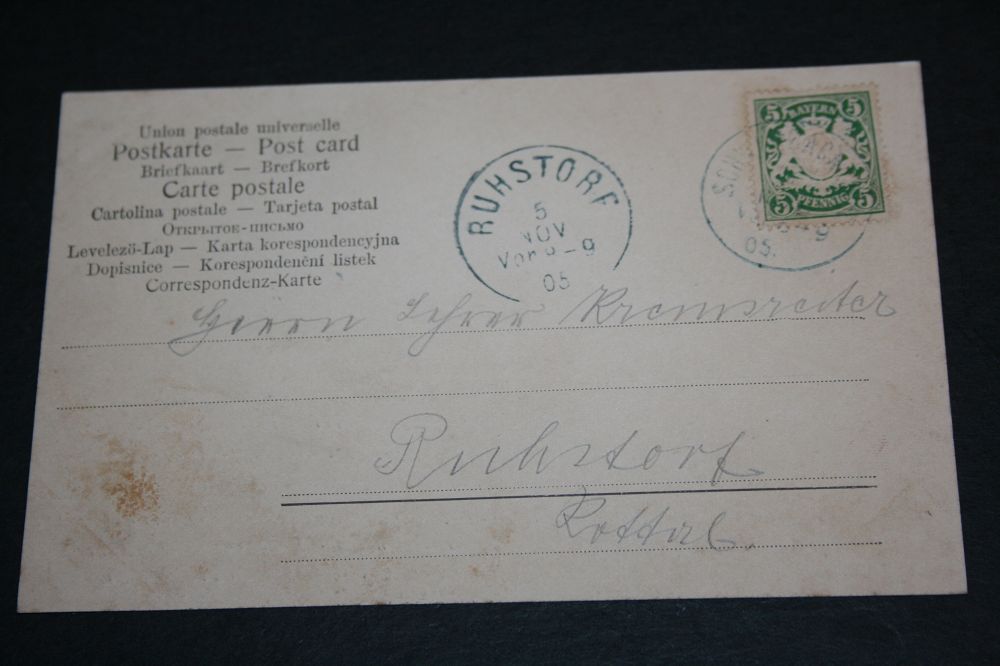 Union postale universelle
Postkarte — Post card
Briefkaart — Brefkort
Carte postale
Cartolina postale — Tarjeta postal
Открытое-письмо
Levelező-Lap — Karta korespondencyjna
Dopisnice — Korespondenční listek
Correspondenz-Karte
RUHSTORF
5
NOV
Vor 8-9
05
5 BAYERN 5
5 PFENNIG 5
05.
Herrn Lehrer Kremsreiter
Ruhstorf
Rottal